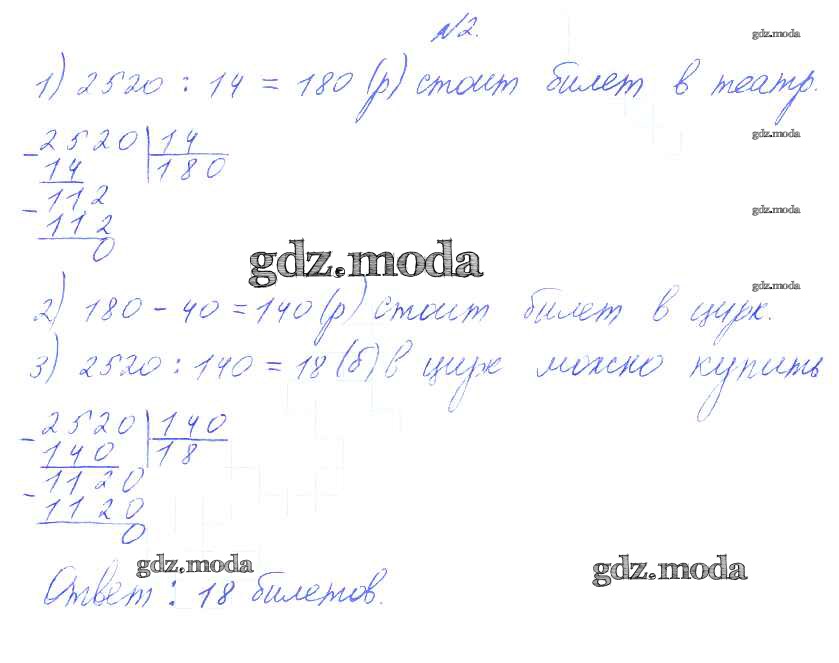 №2.
gdz.moda
1) 2520 : 14 = 180 (р) стоит билет в театр.
gdz.moda
2520 14
14 180
112
gdz.moda
112
0
gdz.moda
gdz.moda
2) 180 - 40 = 140 (р) стоит билет в цирк.
3) 2520 : 140 = 18 (б) в цирк можно купить
2520 140
140 18
1120
1120
0
gdz.moda
gdz.moda
Ответ : 18 билетов.